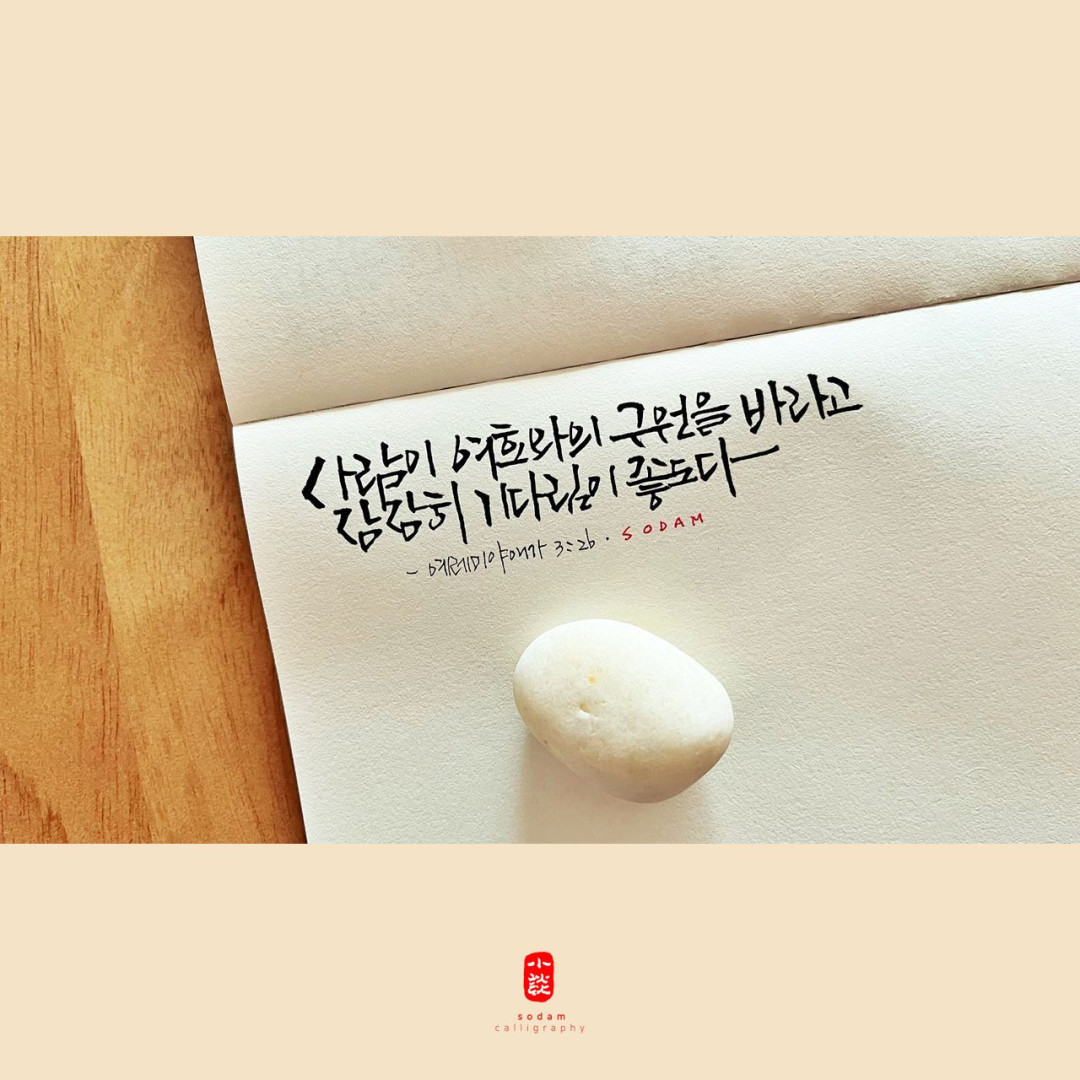 사람이 여호와의 구원을 바라고
잠잠히 기다림이 좋도다
- 예레미야애가 3:26 · SODAM
小談
sodam
calligraphy